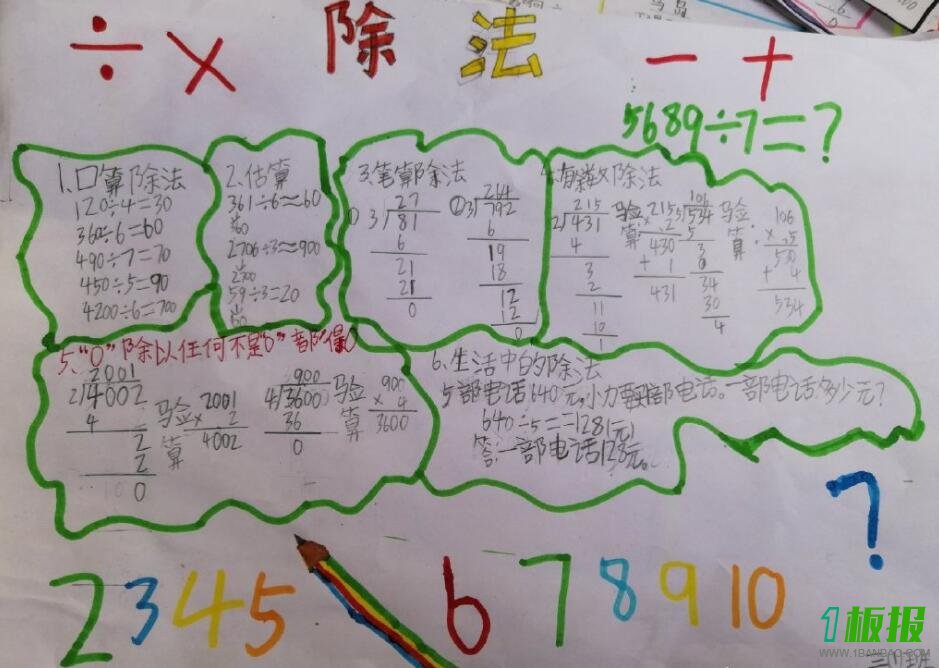 ÷ × 除法 - +
5689÷7=?
1.口算除法
120÷4=30
360÷6=60
490÷7=70
450÷5=90
4200÷6=700
2.估算
361÷6≈60
360
2706÷3≈900
2700
59÷3=20
60
3.笔算除法
27
3 81
6
21
21
0
② 264
3 792
6
19
18
12
12
0
数除法
215
2 431
4
3
2
11
10
1
验算
215
× 2
430
+ 1
431
106
5 534
5
3
0
34
30
4
验算
106
× 5
530
+ 4
534
5、“0”除以任何不是“0”都得0
2001
2 4002
4
2
2
0
验算
2001
× 2
4002
900
4 3600
36
0
验算
900
× 4
3600
6.生活中的除法
5部电话640元,小力要买部电话。一部电话多少元?
640÷5=128(元)
答:一部电话128元。
2 3 4 5 6 7 8 9 10
?
1板报
WWW.1BANBAO.COM